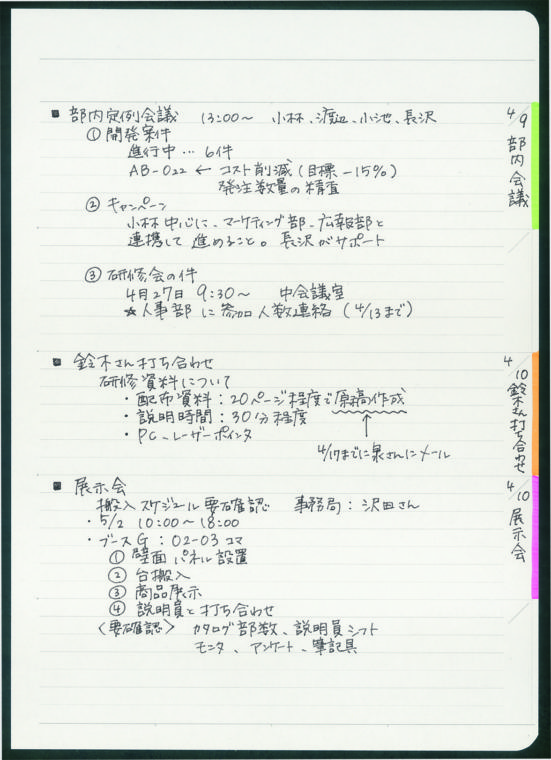 ■ 部内定例会議 13:00〜 小林、渡辺、小池、長沢
① 開発案件
進行中… 6件
AB-022 ← コスト削減(目標-15%)
発注数量の精査
② キャンペーン
小林中心に、マーケティング部、広報部と
連携して進めること。長沢がサポート
③ 研修会の件
4月27日 9:30〜 中会議室
☆人事部に参加人数連絡(4/13まで)
■ 鈴木さん打ち合わせ
研修資料について
・配布資料:20ページ程度で原稿作成
・説明時間:30分程度
・PC、レーザーポインタ
4/17までに泉さんにメール
■ 展示会
搬入スケジュール要確認 事務局:沢田さん
・5/2 10:00〜18:00
・ブースG:02-03コマ
① 壁面パネル設置
② 台搬入
③ 商品展示
④ 説明員と打ち合わせ
〈要確認〉 カタログ部数、説明員シフト
モニタ、アンケート、筆記具
4/9 部内会議
4/10 鈴木さん打ち合わせ
4/10 展示会